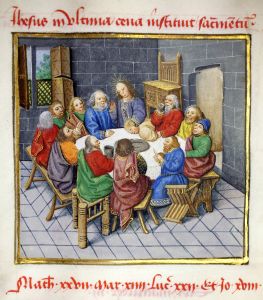 Ihesus in vltima cena instituit sacr̄mentū
Math. xxvi. Mar. xiiii. Luc. xxii. Et Io. xiii.